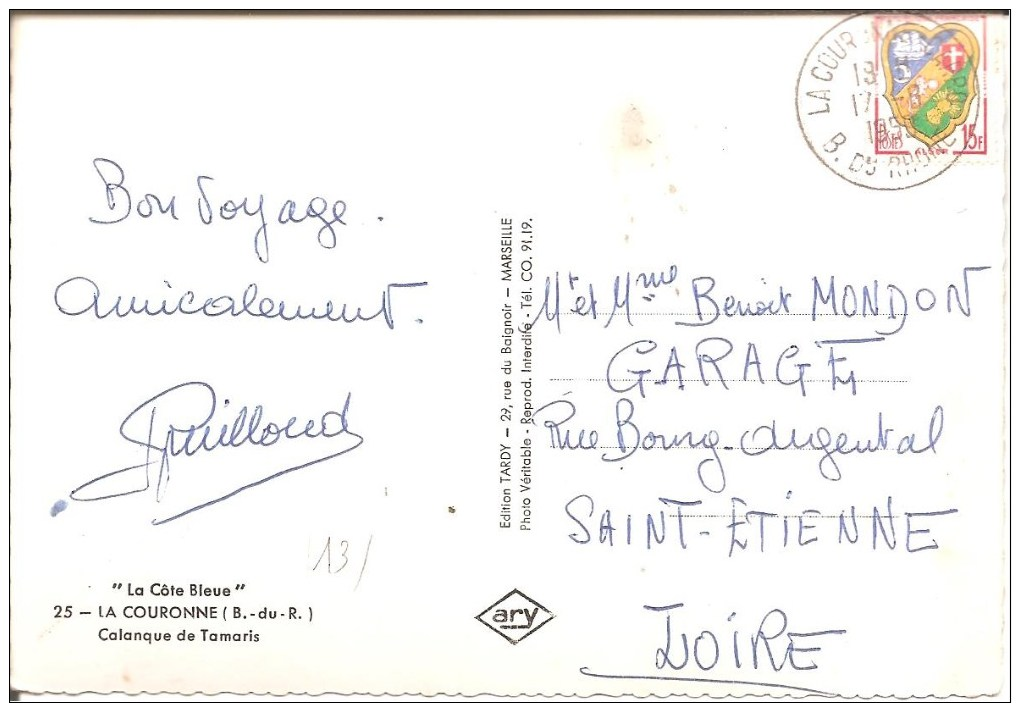 LA COURONNE
18 H
17 - 8
1959
B. DU RHONE
POSTES 15F
Bon Voyage.
Amicalement.
"La Côte Bleue"
25 — LA COURONNE ( B. - du - R. )
Calanque de Tamaris
13/
Edition TARDY — 29, rue du Baignoir — MARSEILLE
Photo Véritable - Reprod. Interdite - Tél. CO. 91.19.
ary
Mr et Mme Benoit MONDON
GARAGE
Rue Bourg-Argental
SAINT-ETIENNE
LOIRE